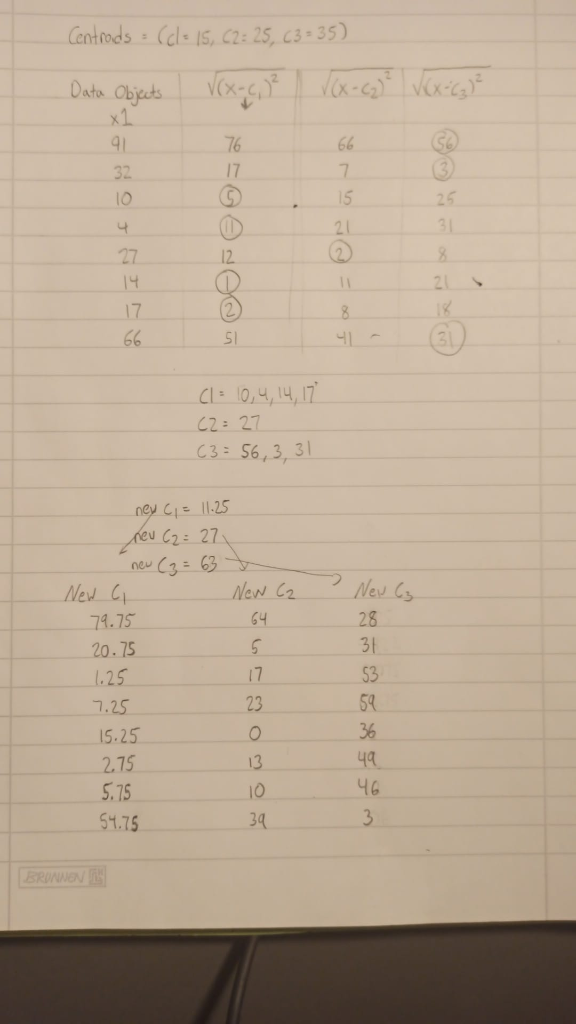 Centrods = (C1= 15, C2= 25, C3 = 35)
Data Objects √(x-C₁)² √(x-C₂)² √(x-C₃)²
x1
91 76 66 56
32 17 7 3
10 5 15 25
4 11 21 31
27 12 2 8
14 1 11 21
17 2 8 18
66 51 41 31
C1= 10,4,14,17
C2= 27
C3= 56, 3, 31
new C₁= 11.25
new C₂= 27
new C₃= 63
New C₁ New C₂ New C₃
79.75 64 28
20.75 5 31
1.25 17 53
7.25 23 59
15.25 0 36
2.75 13 49
5.75 10 46
54.75 39 3